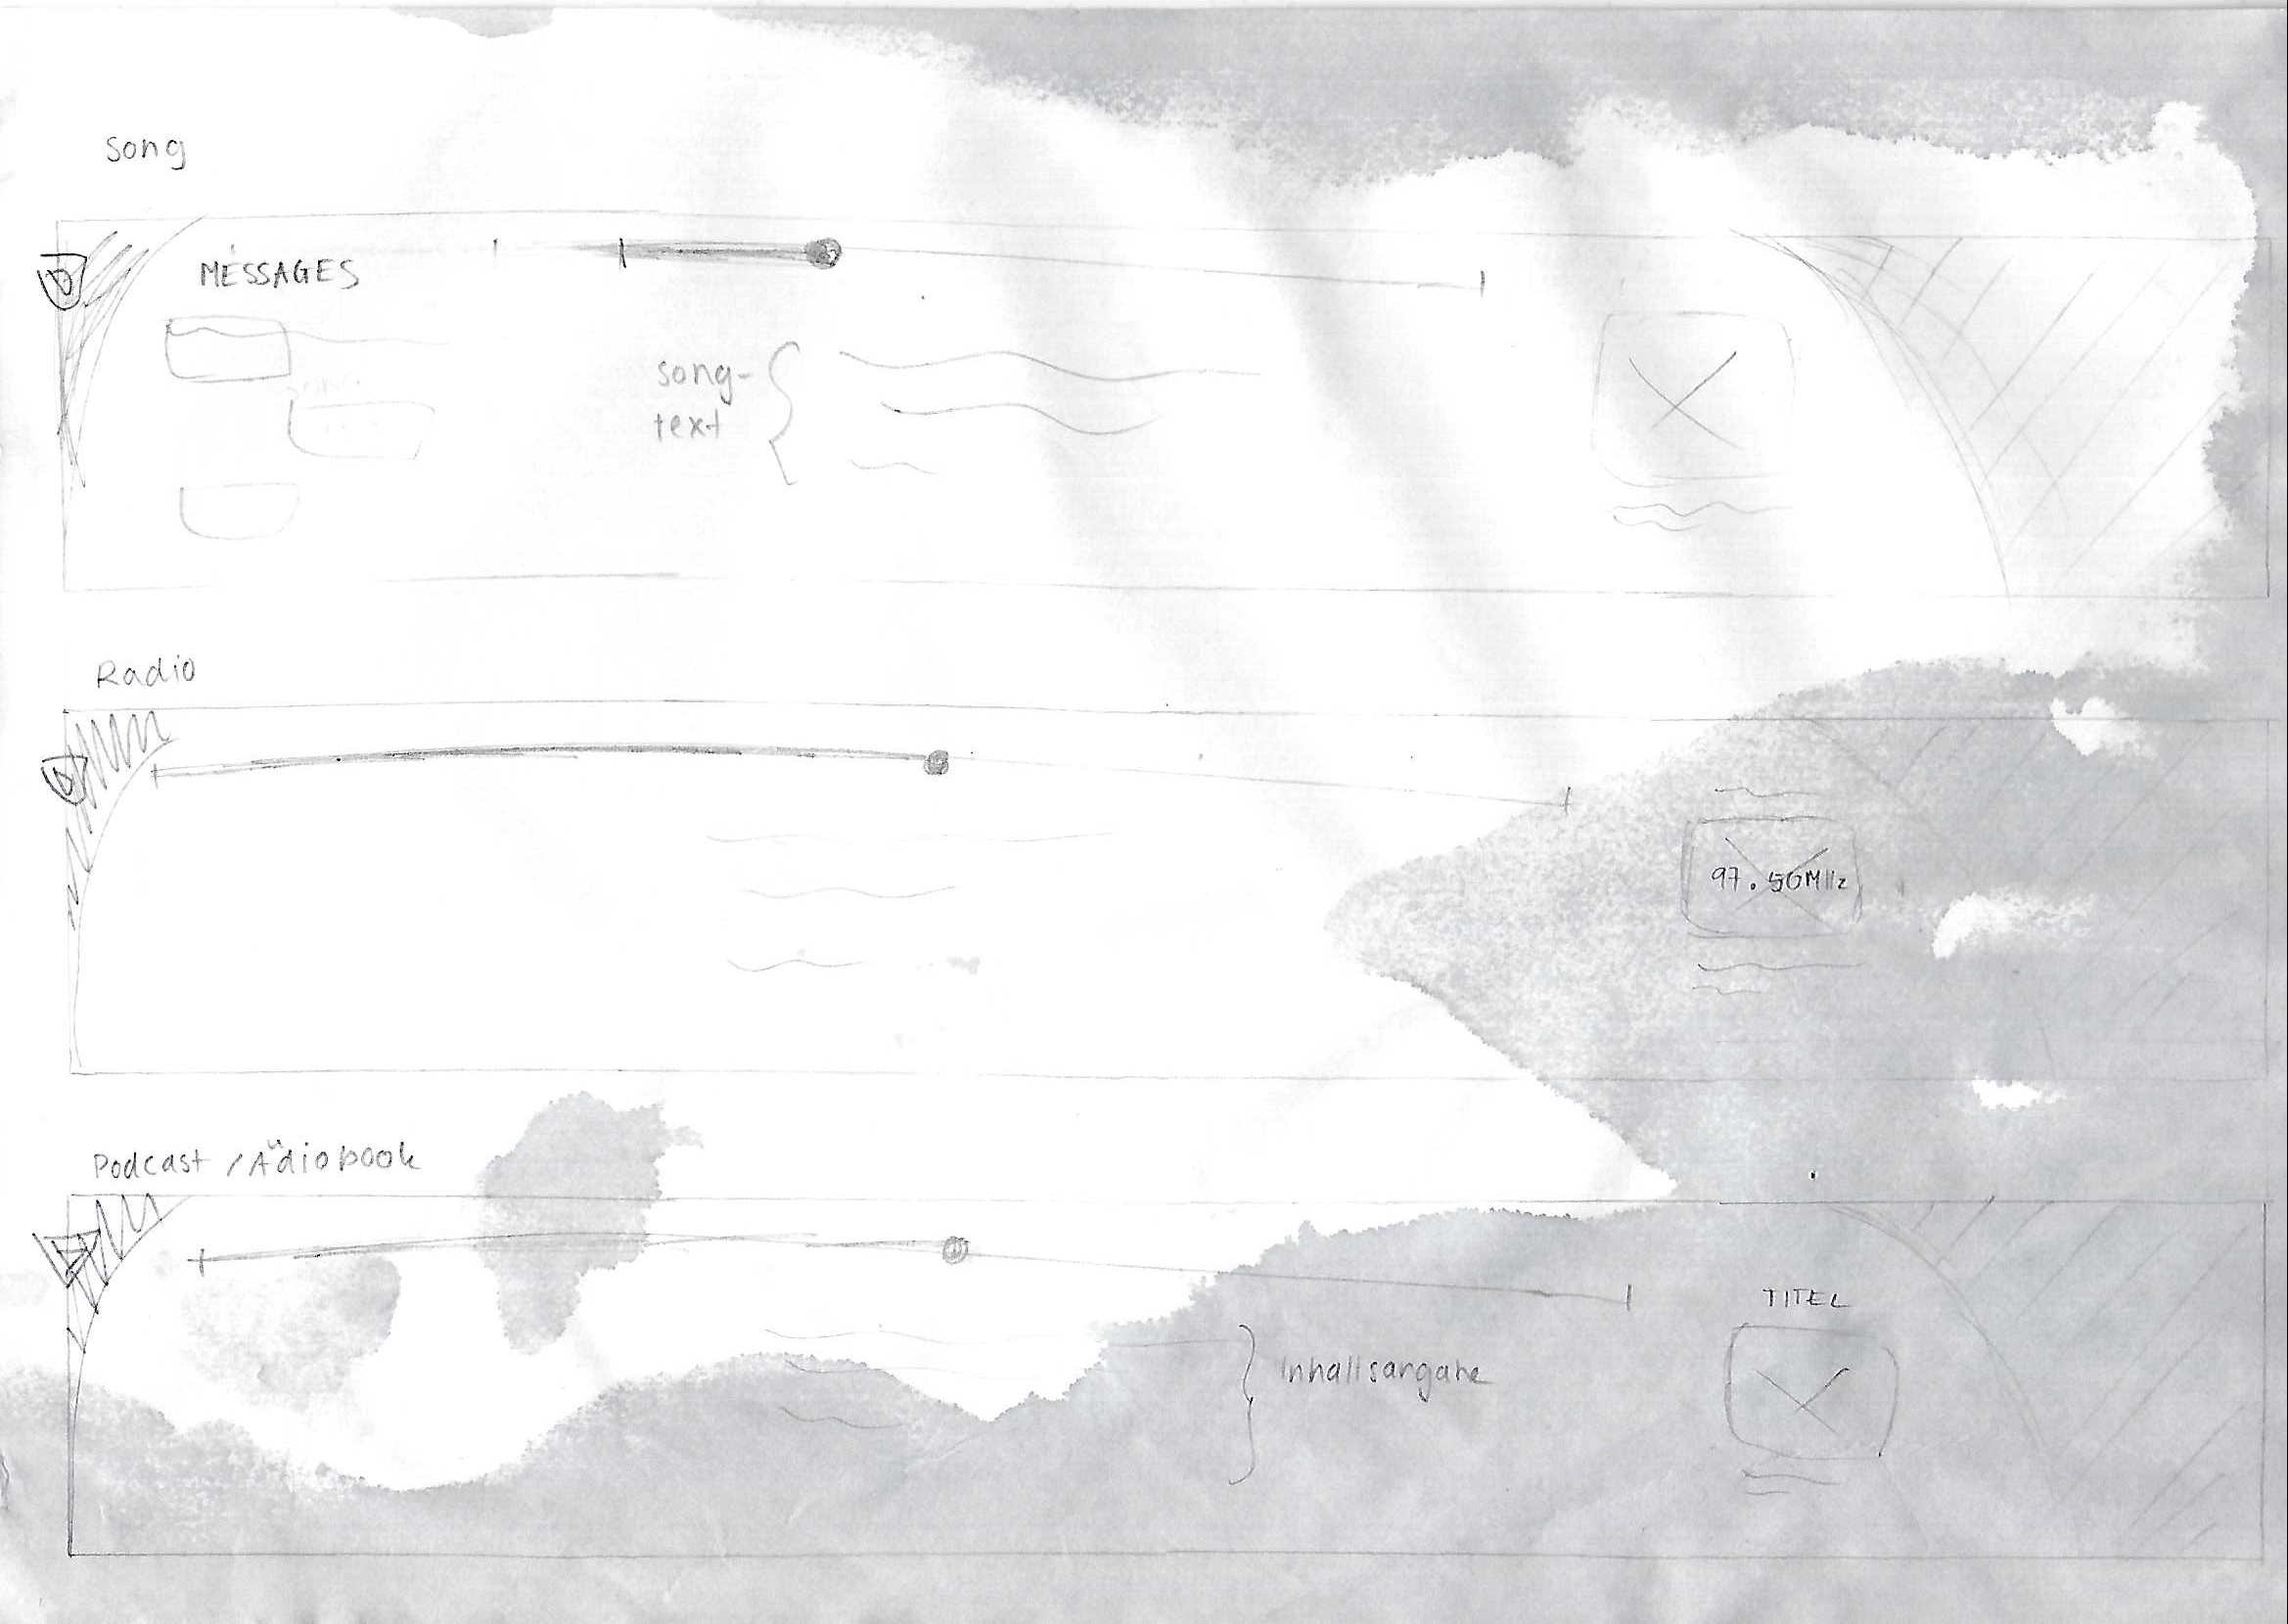 Song
MESSAGES
song-
text
Radio
97.50MHz
Podcast / Audiobook
TITEL
Inhaltsangabe